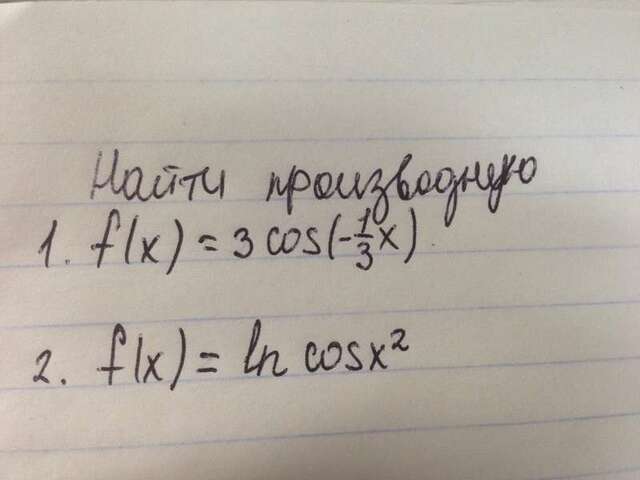 Найти производную
1. f(x) = 3 cos(-1/3 x)
2. f(x) = ln cosx²